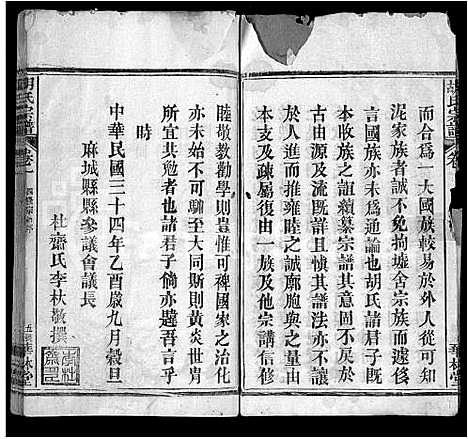 而合爲一大國族較易於外人從可
泥家族者不免拘墟舍宗族而遽
言國族亦未爲通論也胡氏諸君
本敬宗收族續纂宗譜其意固不
古由源及流既詳且愼其譜法亦不讓
者進而推雍睦之誠廓胞與之量由
一支及疎屬復由一族及他宗以
睦敬教勸學則豈惟可裨國家之治化
亦未始不可馴至大同斯則黃炎世冑
所宜共勉者也諸君子倘亦韙吾言乎
時
中華民國三十四年乙酉歲九月穀旦
麻城縣縣參議會議長
杜齋氏李杕敬撰
胡氏宗譜
卷一